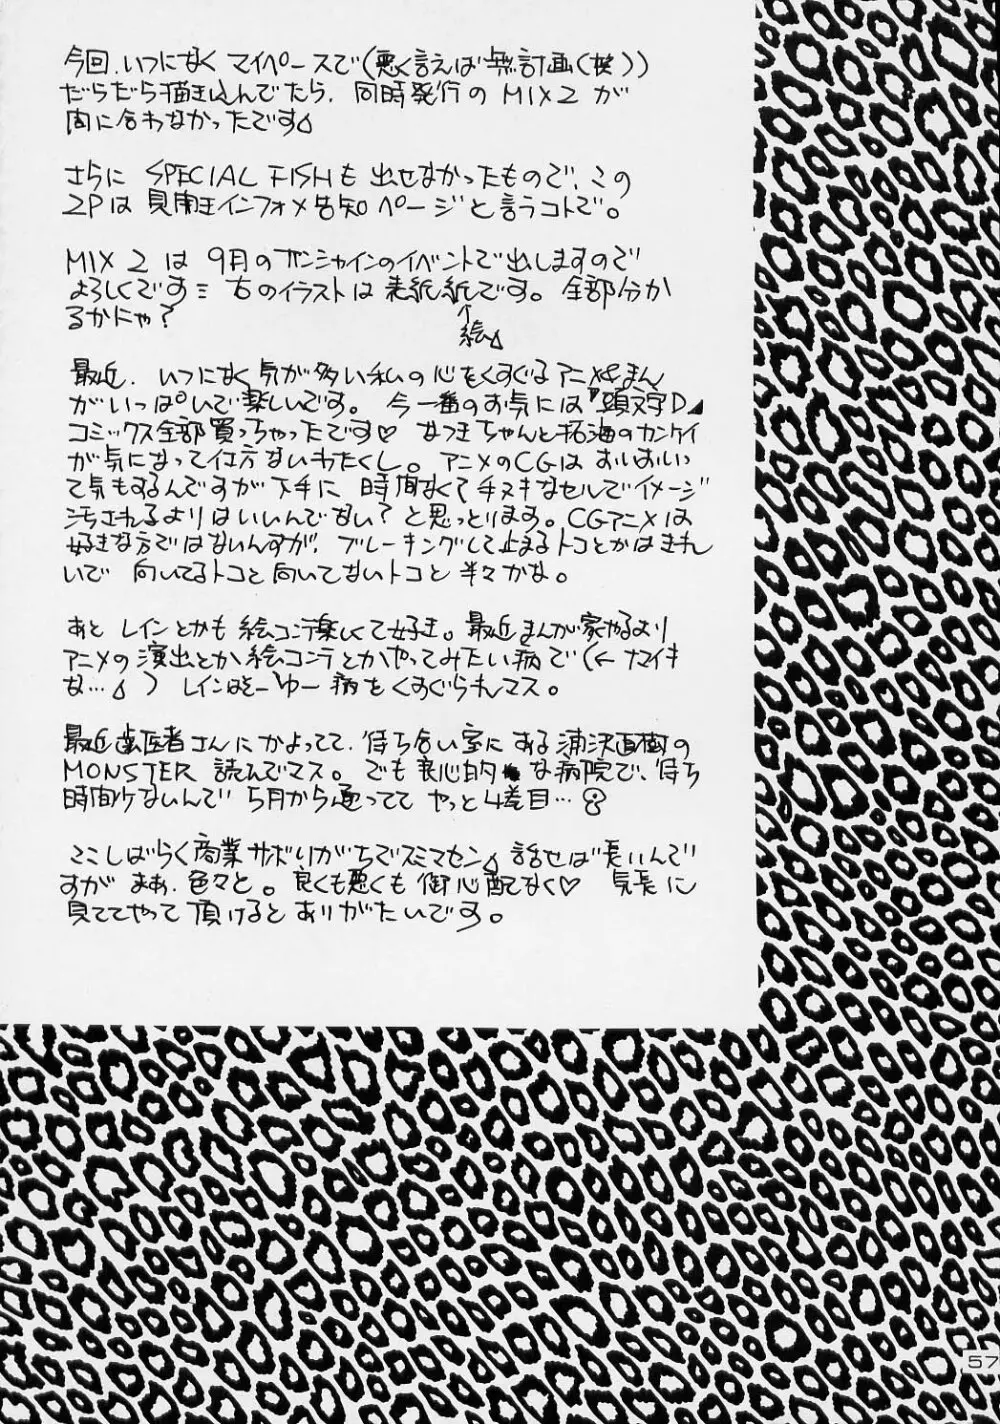 今回、いつになく マイペースで(悪く言えば無計画(笑))
だらだら描き込んでたら、同時発行の MIX2 が
間に合わなかったです
さらに SPECIAL FISHも 出せなかったもので、この
2Pは 貝開王インフォメ告知ページと言うコトで。
MIX 2 は 9月のサンシャインのイベントで出しますので
よろしくです 右のイラストは 表紙紙です。全部分か
るかにゃ?
↑
絵
最近、いつになく 気が多い私の心をくすぐる アニメ&まん
がいっぱいで楽しいです。 今一番のお気には『頭文字D』
コミックス全部買っちゃったです♡ なつきちゃんと拓海のカンケイ
が気になって仕方ないわたくし。アニメのCGは おいおいっ
て気もするんですが 下手に 時間なくて手ヌキなセルでイメージ
汚されるよりはいいんでない? と思っとります。CGアニメは
好きな方ではないんすが、ブレーキングして止まるトコとかはきれ
いで 向いてるトコと向いてないトコと 半々かな。
あと レインとかも 絵コンテ楽しくて好き。最近まんが家やるより
アニメの演出とか絵コンテとかやってみたい病で(←ナマイキ
な…) レインはそーゆー病をくすぐられマス。
最近歯医者さんにかよってて、待ち合い室にある浦沢直樹の
MONSTER 読んでマス。でも良心的な病院で、待ち
時間少ないんで 5月から通ってて やっと4巻目…
ここしばらく商業サボりがちでスミマセン 話せば長いんで
すが まあ、色々と。良くも悪くも 御心配なく♡ 気長に
見ててやって頂けると ありがたいです。
57